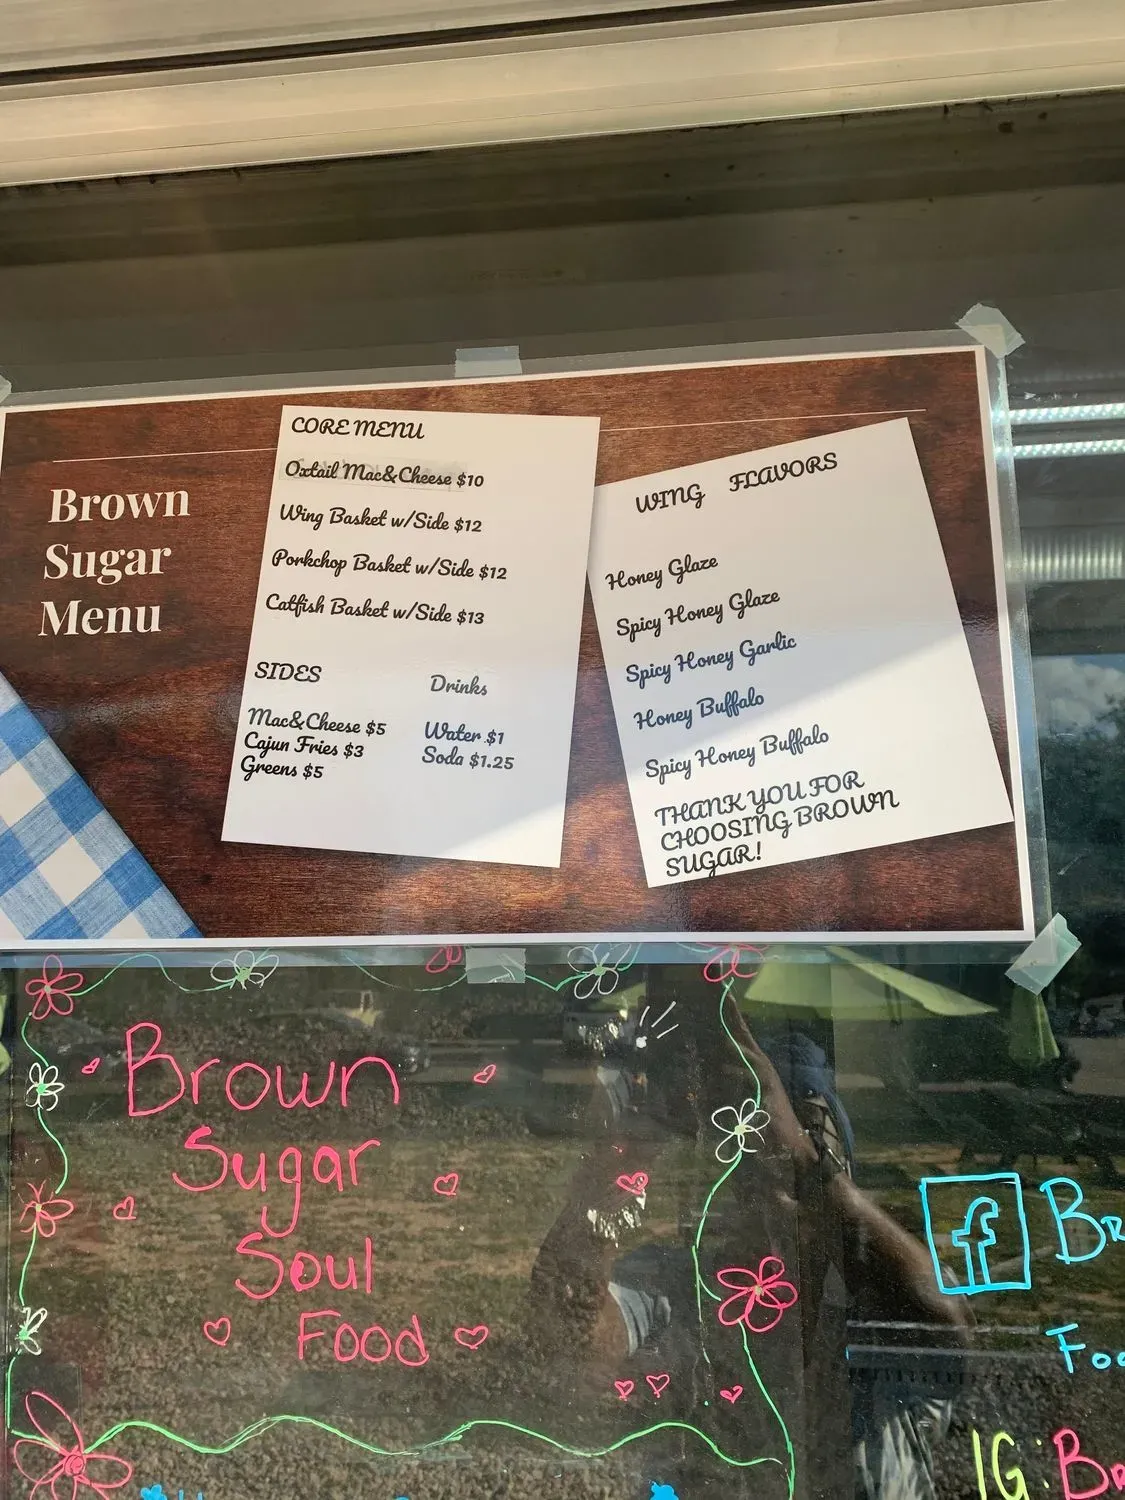 Brown
Sugar
Menu
CORE MENU
Oxtail Mac&Cheese $10
Wing Basket w/Side $12
Porkchop Basket w/Side $12
Catfish Basket w/Side $13
SIDES
Mac&Cheese $5
Cajun Fries $3
Greens $5
Drinks
Water $1
Soda $1.25
WING FLAVORS
Honey Glaze
Spicy Honey Glaze
Spicy Honey Garlic
Honey Buffalo
Spicy Honey Buffalo
THANK YOU FOR
CHOOSING BROWN
SUGAR!
Brown
Sugar
Soul
Food
f
IG: